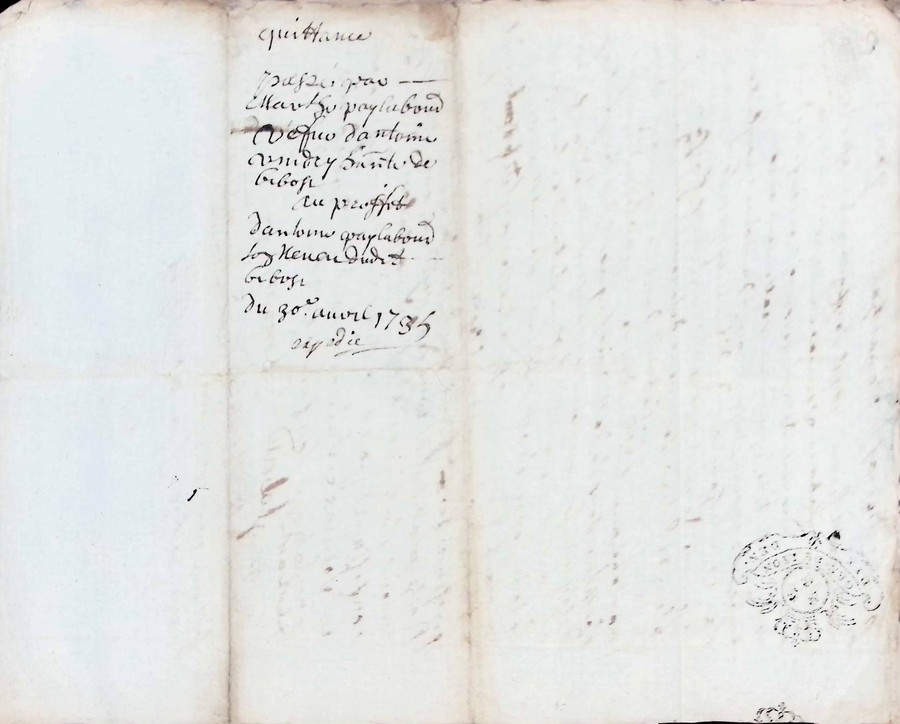 quittance
passé par
Marthe paylaboud
veffve d'antoine
habt. de
bibost
au proffit
d'antoine paylaboud
son neveu dudt
bibost
du 30e. avril 1735
expedié